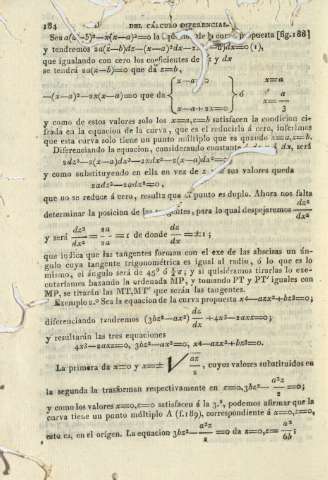 184 DEL CÁLCULO DIFERENCIAL.
Sea a(z—b)²—x(x—a)²=0 la propuesta [fig. 188]
y tendremos 2a(z—b)dz—(x—a)²dx—2x(x—a)dx=0 (1),
que igualando con cero los coeficientes de dz y dx
se tendrá 2a(z—b)=0 que da z=b,
—(x—a)²—2x(x—a)=0 que da { x—a=0 x—a+2x=0 } ó { x=a x= a/3
y como de estos valores solo los x=a, z=b satisfacen la condicion ci-
frada en la equacion de la curva, que es el reducirla á cero, inferimos
que esta curva solo tiene un punto múltiplo que es quando x=a, z=b.
Diferenciando la equacion, considerando constante dx, será
y como substituyendo en ella en vez de z y x sus valores queda
2adz²—2adx²=0,
que no se reduce á cero, resulta que el punto es duplo. Ahora nos falta
determinar la posicion de las tangentes, para lo qual despejaremos dz²/dx²
y será dz²/dx² = 2a/2a = 1 de donde dz/dx = ±1;
que indica que las tangentes forman con el exe de las abscisas un án-
gulo cuya tangente trigonométrica es igual al radio, ó lo que es lo
mismo, el ángulo será de 45° ó ¼π; y si quisiéramos tirarlas lo exe-
cutaríamos baxando la ordenada MP, y tomando PT y PT' iguales con
MP, se tirarán las MT, MT' que serán las tangentes.
Exemplo 2.° Sea la equacion de la curva propuesta x⁴—axz²+bz³=0;
diferenciando tendremos (3bz²—2axz) dz/dx +4x³—2axz=0;
y resultarán las tres equaciones
4x³—2axz=0, 3bz²—ax²=0, x⁴—ax²z+bz³=0.
La primera da x=0 y x=± √ az/2, cuyos valores substituidos en
la segunda la trasforman respectivamente en z=0, 3bz²— a²z/2 =0;
y como los valores x=0, z=0 satisfacen á la 3.ª, podemos afirmar que la
curva tiene un punto múltiplo A (f. 189), correspondiente á x=0, z=0,
esto es, en el origen. La equacion 3bz²— a²z/2 =0 da z=0, z= a²/6b;